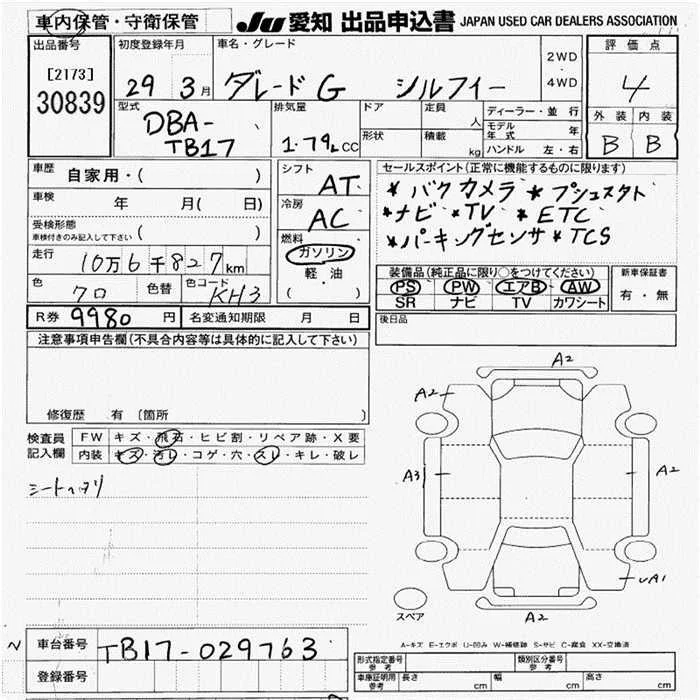 車内保管・守衛保管 JU 愛知 出品申込書 JAPAN USED CAR DEALERS ASSOCIATION
出品番号 初度登録年月 車名・グレード 2WD 評価点
[2173] 29 3月 グレードG シルフィー 4WD 4
30839
型式 排気量 ドア 定員 人 ディーラー・並行 外装 内装
DBA-TB17 1.79L cc 形状 積載 kg モデル年式 年 B B
ハンドル 左・右
車歴 自家用・( ) シフト AT セールスポイント(正常に機能するものに限ります)
車検 年 月( 日) 冷房 AC * バクカメラ * プシュスタト
受検形態 * ナビ * TV * ETC
車検付きのみ記入して下さい ( ) 燃料 ガソリン * パーキングセンサ * TCS
走行 10万6千827km 軽・油 装備品(純正品に限り○をつけてください) 新車保証書
色 クロ 色替 色コード KH3 ( ) PS PW エアB AW 有・無
SR ナビ TV カワシート
R券 9980円 名変通知期限 月 日 後日品
注意事項申告欄(不具合内容等は具体的に記入して下さい)
修復歴 有 [箇所 ]
検査員 FW キズ・飛石・ヒビ割・リペア跡・X要
記入欄 内装 キズ・汚レ・コゲ・穴・スレ・キレ・破レ
シートヘタリ
A2
A2
A3 A2
A1
スペア A2
A-キズ E-エクボ U-凹み W-補修跡 S-サビ C-腐食 XX-交換済
車台番号 TB17-029763
登録番号
形式指定番号 類別区分番号
参考 参考
車庫証明用 長さ cm 幅 cm 高さ cm
参考